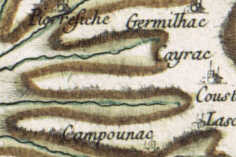 Pierrefiche Germilhac
Cayrac
Coust
Lasc
Campounac